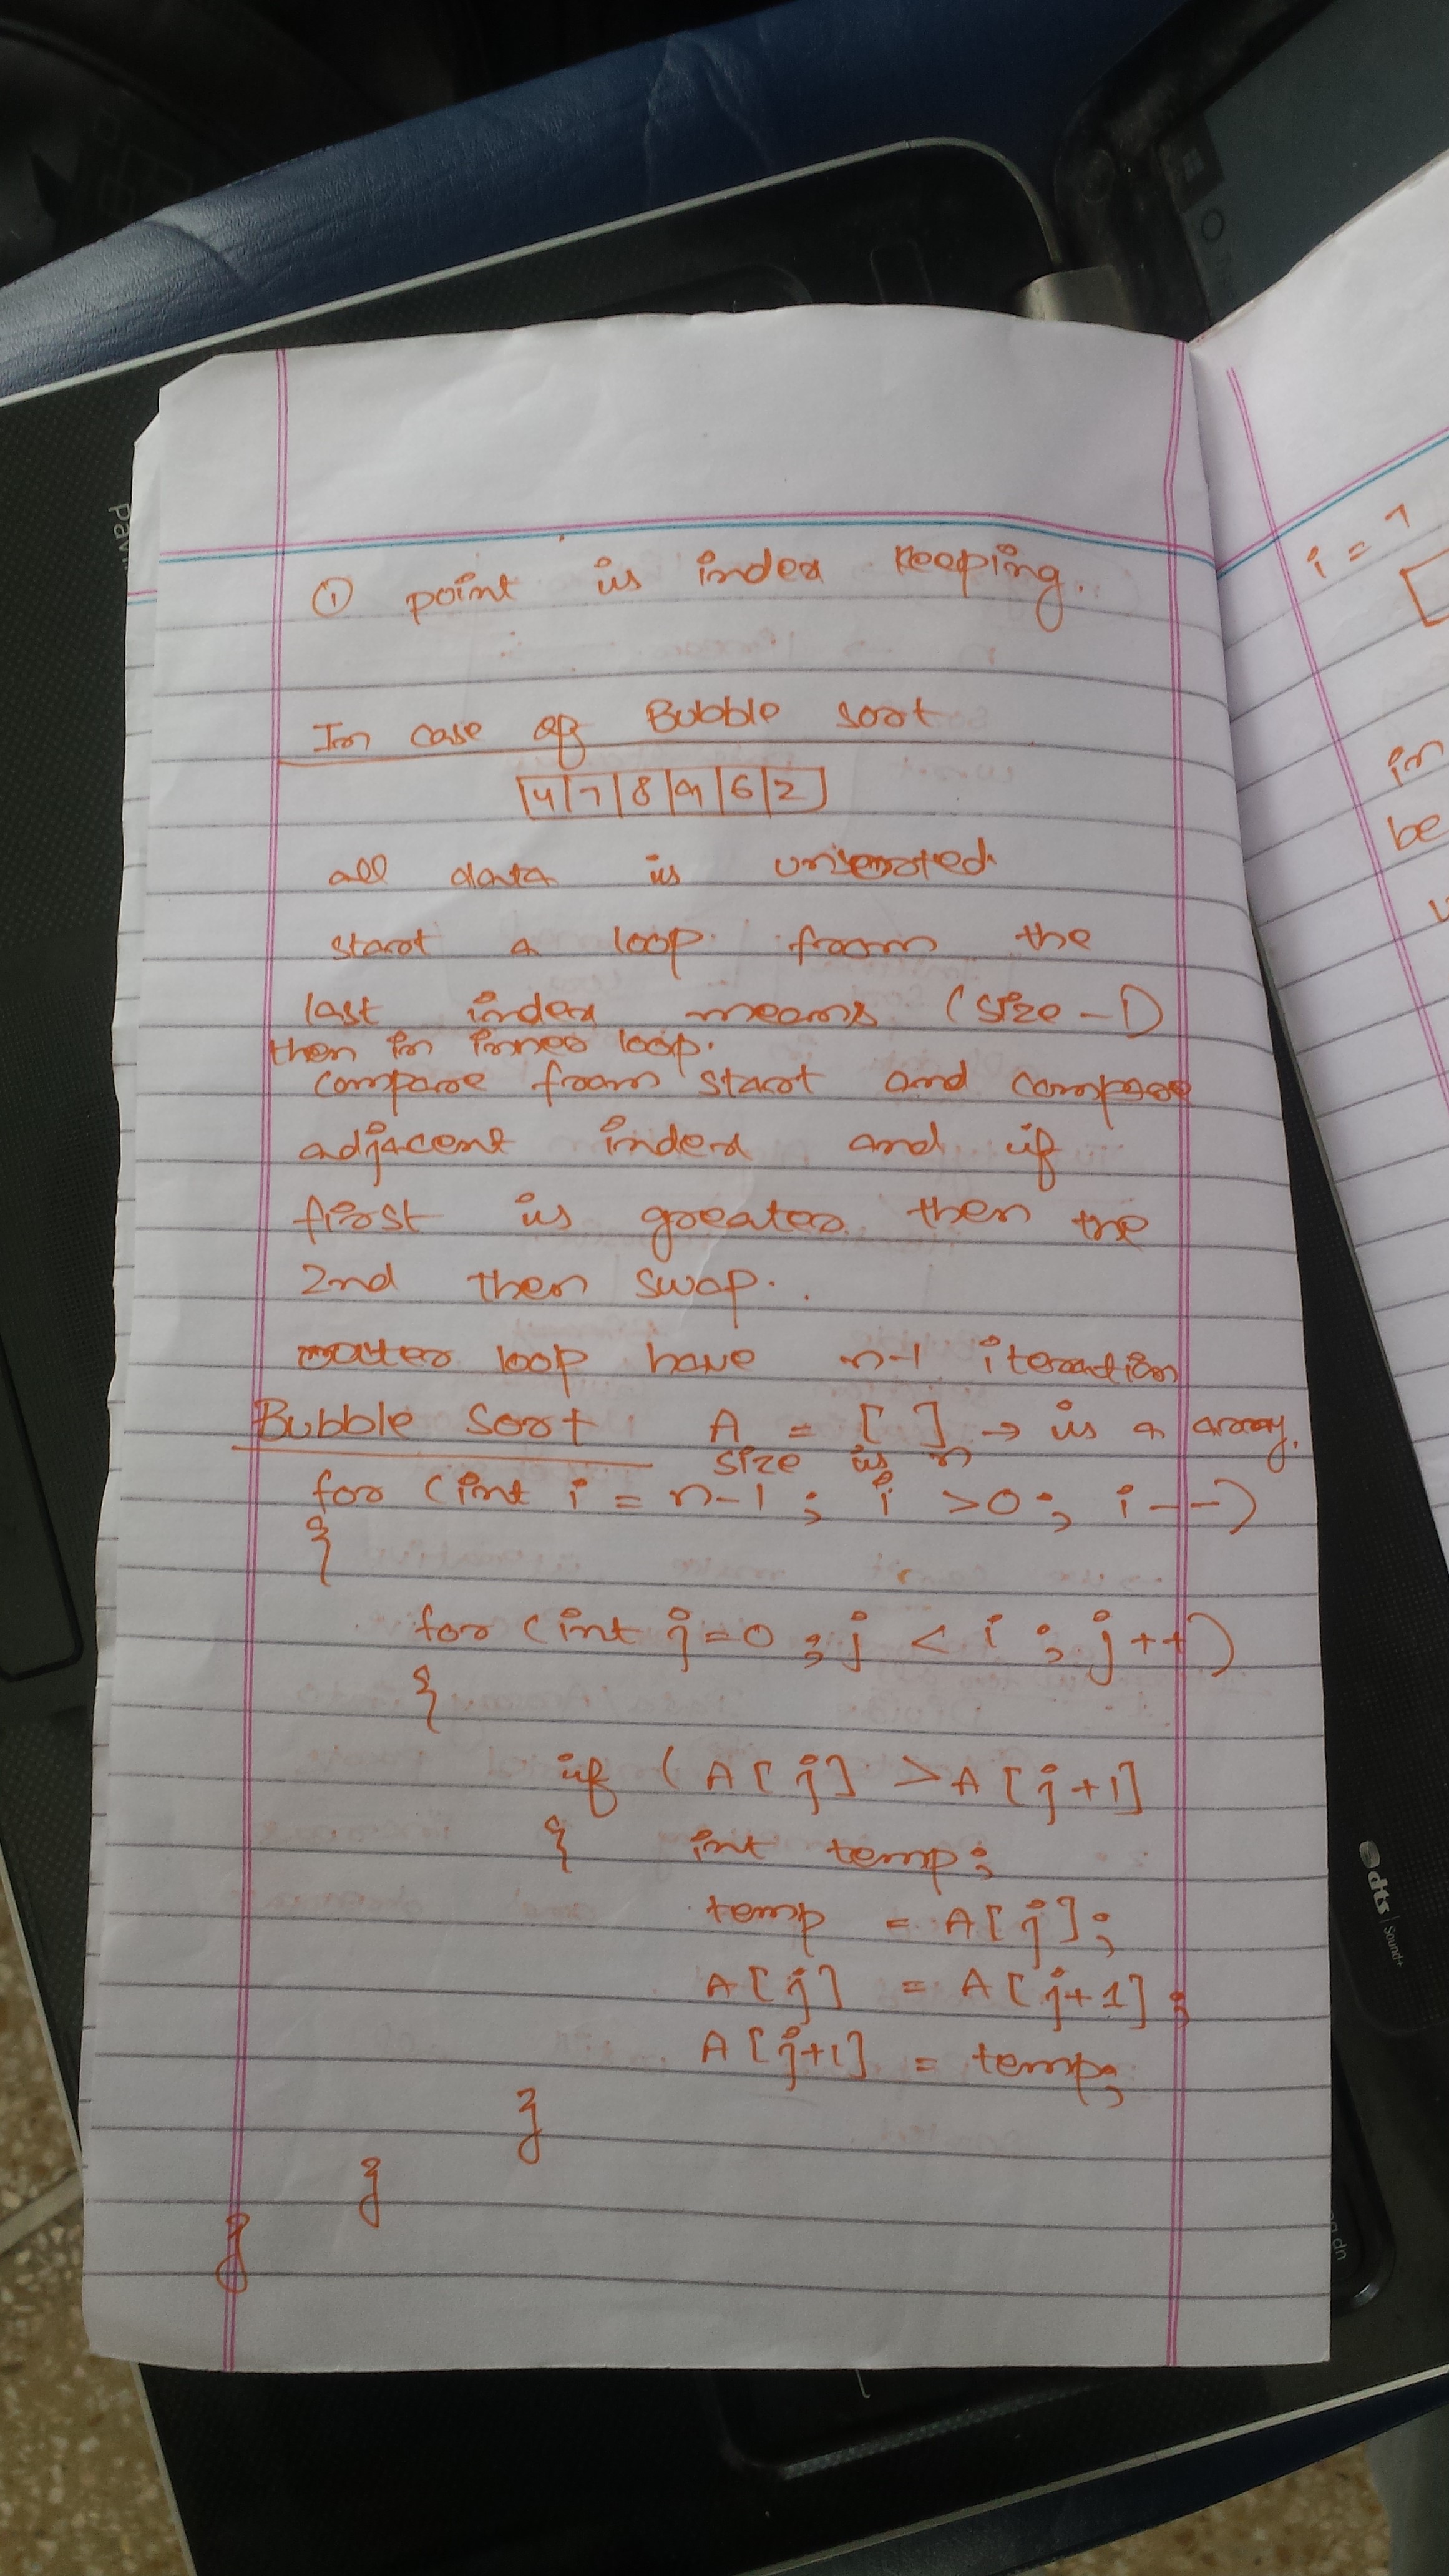 ① point is index keeping.
In case of Bubble sort
4 7 8 9 6 2
all data is unsorted
start a loop from the
last index means (size - 1)
then in inner loop.
compare from start and compare
adjacent index and if
first is greater then the
2nd then swap.
outer loop have n-1 iteraction
Bubble Sort A = [ ] → is a array.
size is n
for (int i = n-1 ; i >0 ; i--)
{
for (int j=0 ; j < i ; j++)
{
if (A[j] > A[j+1]
{ int temp;
temp = A[j];
A[j] = A[j+1] ;
A[j+1] = temp;
}
}
}
i =
in
be
dts Sound+